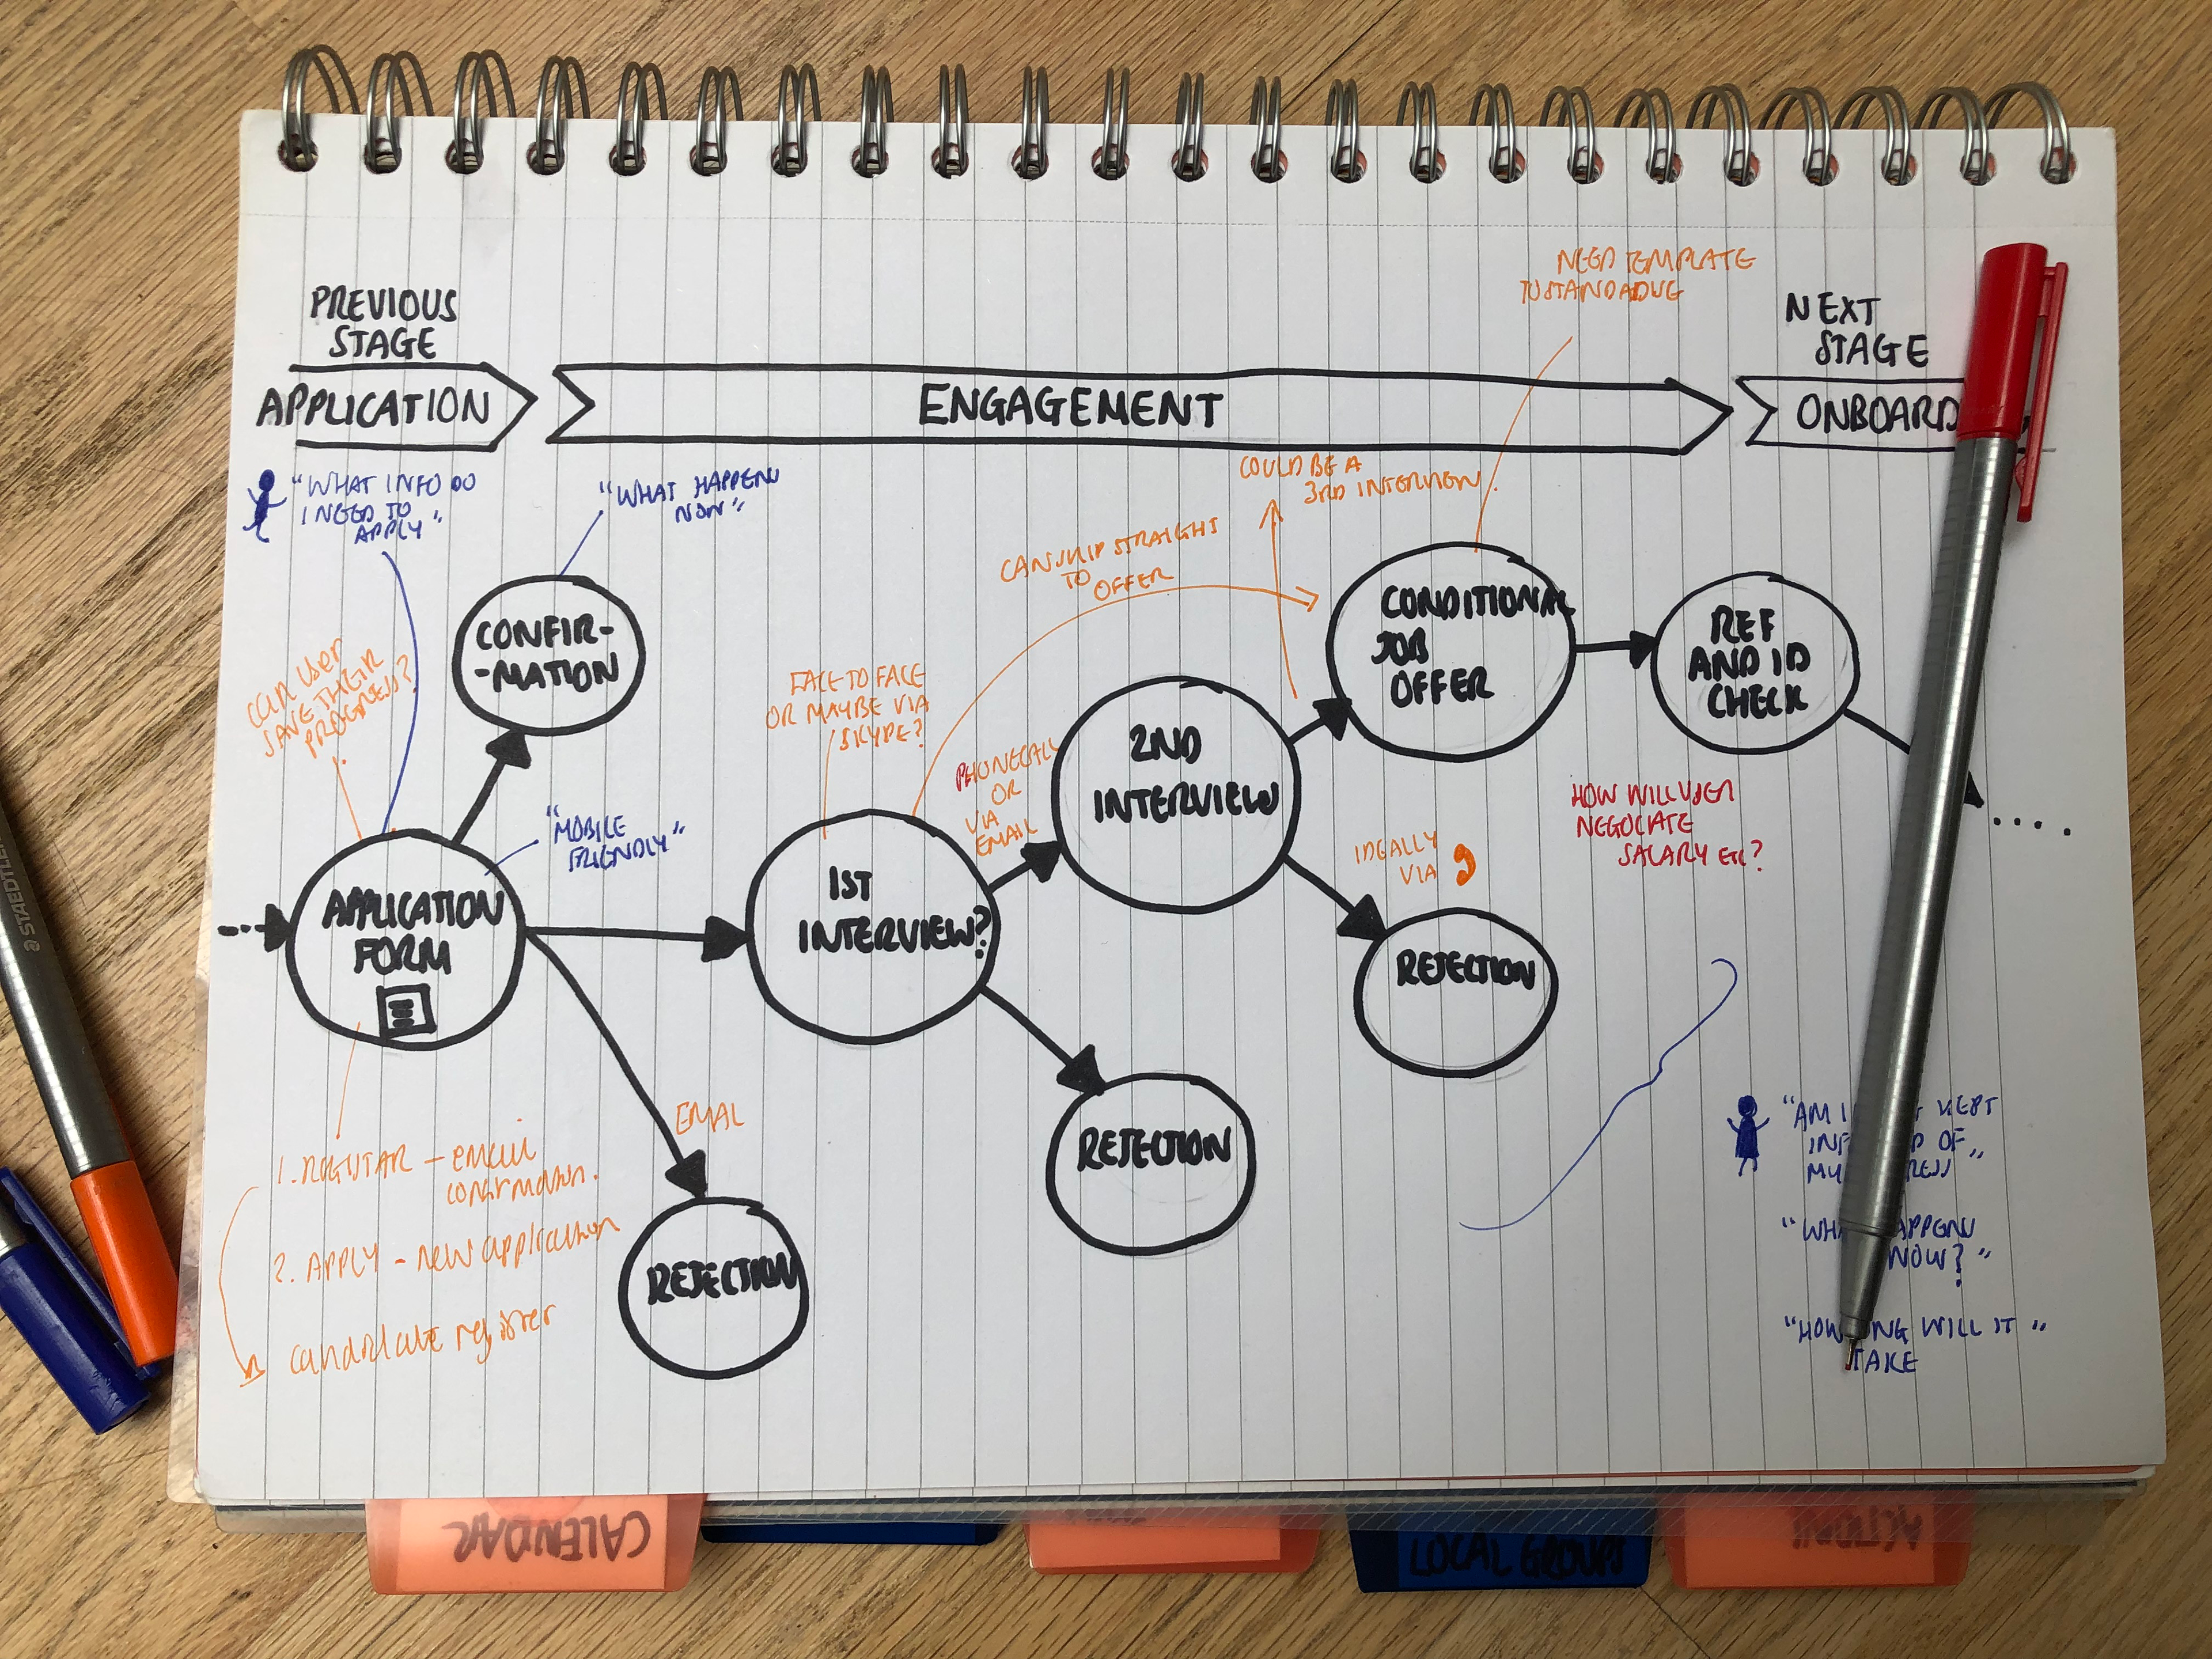 NEED TEMPLATE
PREVIOUS
STAGE
NEXT
STAGE
APPLICATION
ENGAGEMENT
ONBOARD
"WHAT INFO DO
I NEED TO
APPLY"
"WHAT HAPPENS
NOW"
COULD BE A
3RD INTERVIEW.
CAN SKIP STRAIGHT
TO
OFFER
CONFIR-
-MATION
CAN USER
SAVE THEIR
PROGRESS?
FACE TO FACE
OR MAYBE VIA
SKYPE?
PHONECALL
OR
VIA
EMAIL
2ND
INTERVIEW
CONDITIONAL
JOB
OFFER
REF
AND ID
CHECK
"MOBILE
FRIENDLY"
HOW WILL USER
NEGOCIATE
SALARY ETC?
IDEALLY
VIA
APPLICATION
FORM
1ST
INTERVIEW?
REJECTION
REJECTION
EMAIL
REJECTION
1. REGISTAR - email
confirmation.
2. APPLY - new application
candidate register
"AM I KEPT
OF
MY
"
NOW?"
WILL IT"
TAKE
STAEDTLER
CALENDAR
LOCAL GROUPS
ACTIONS